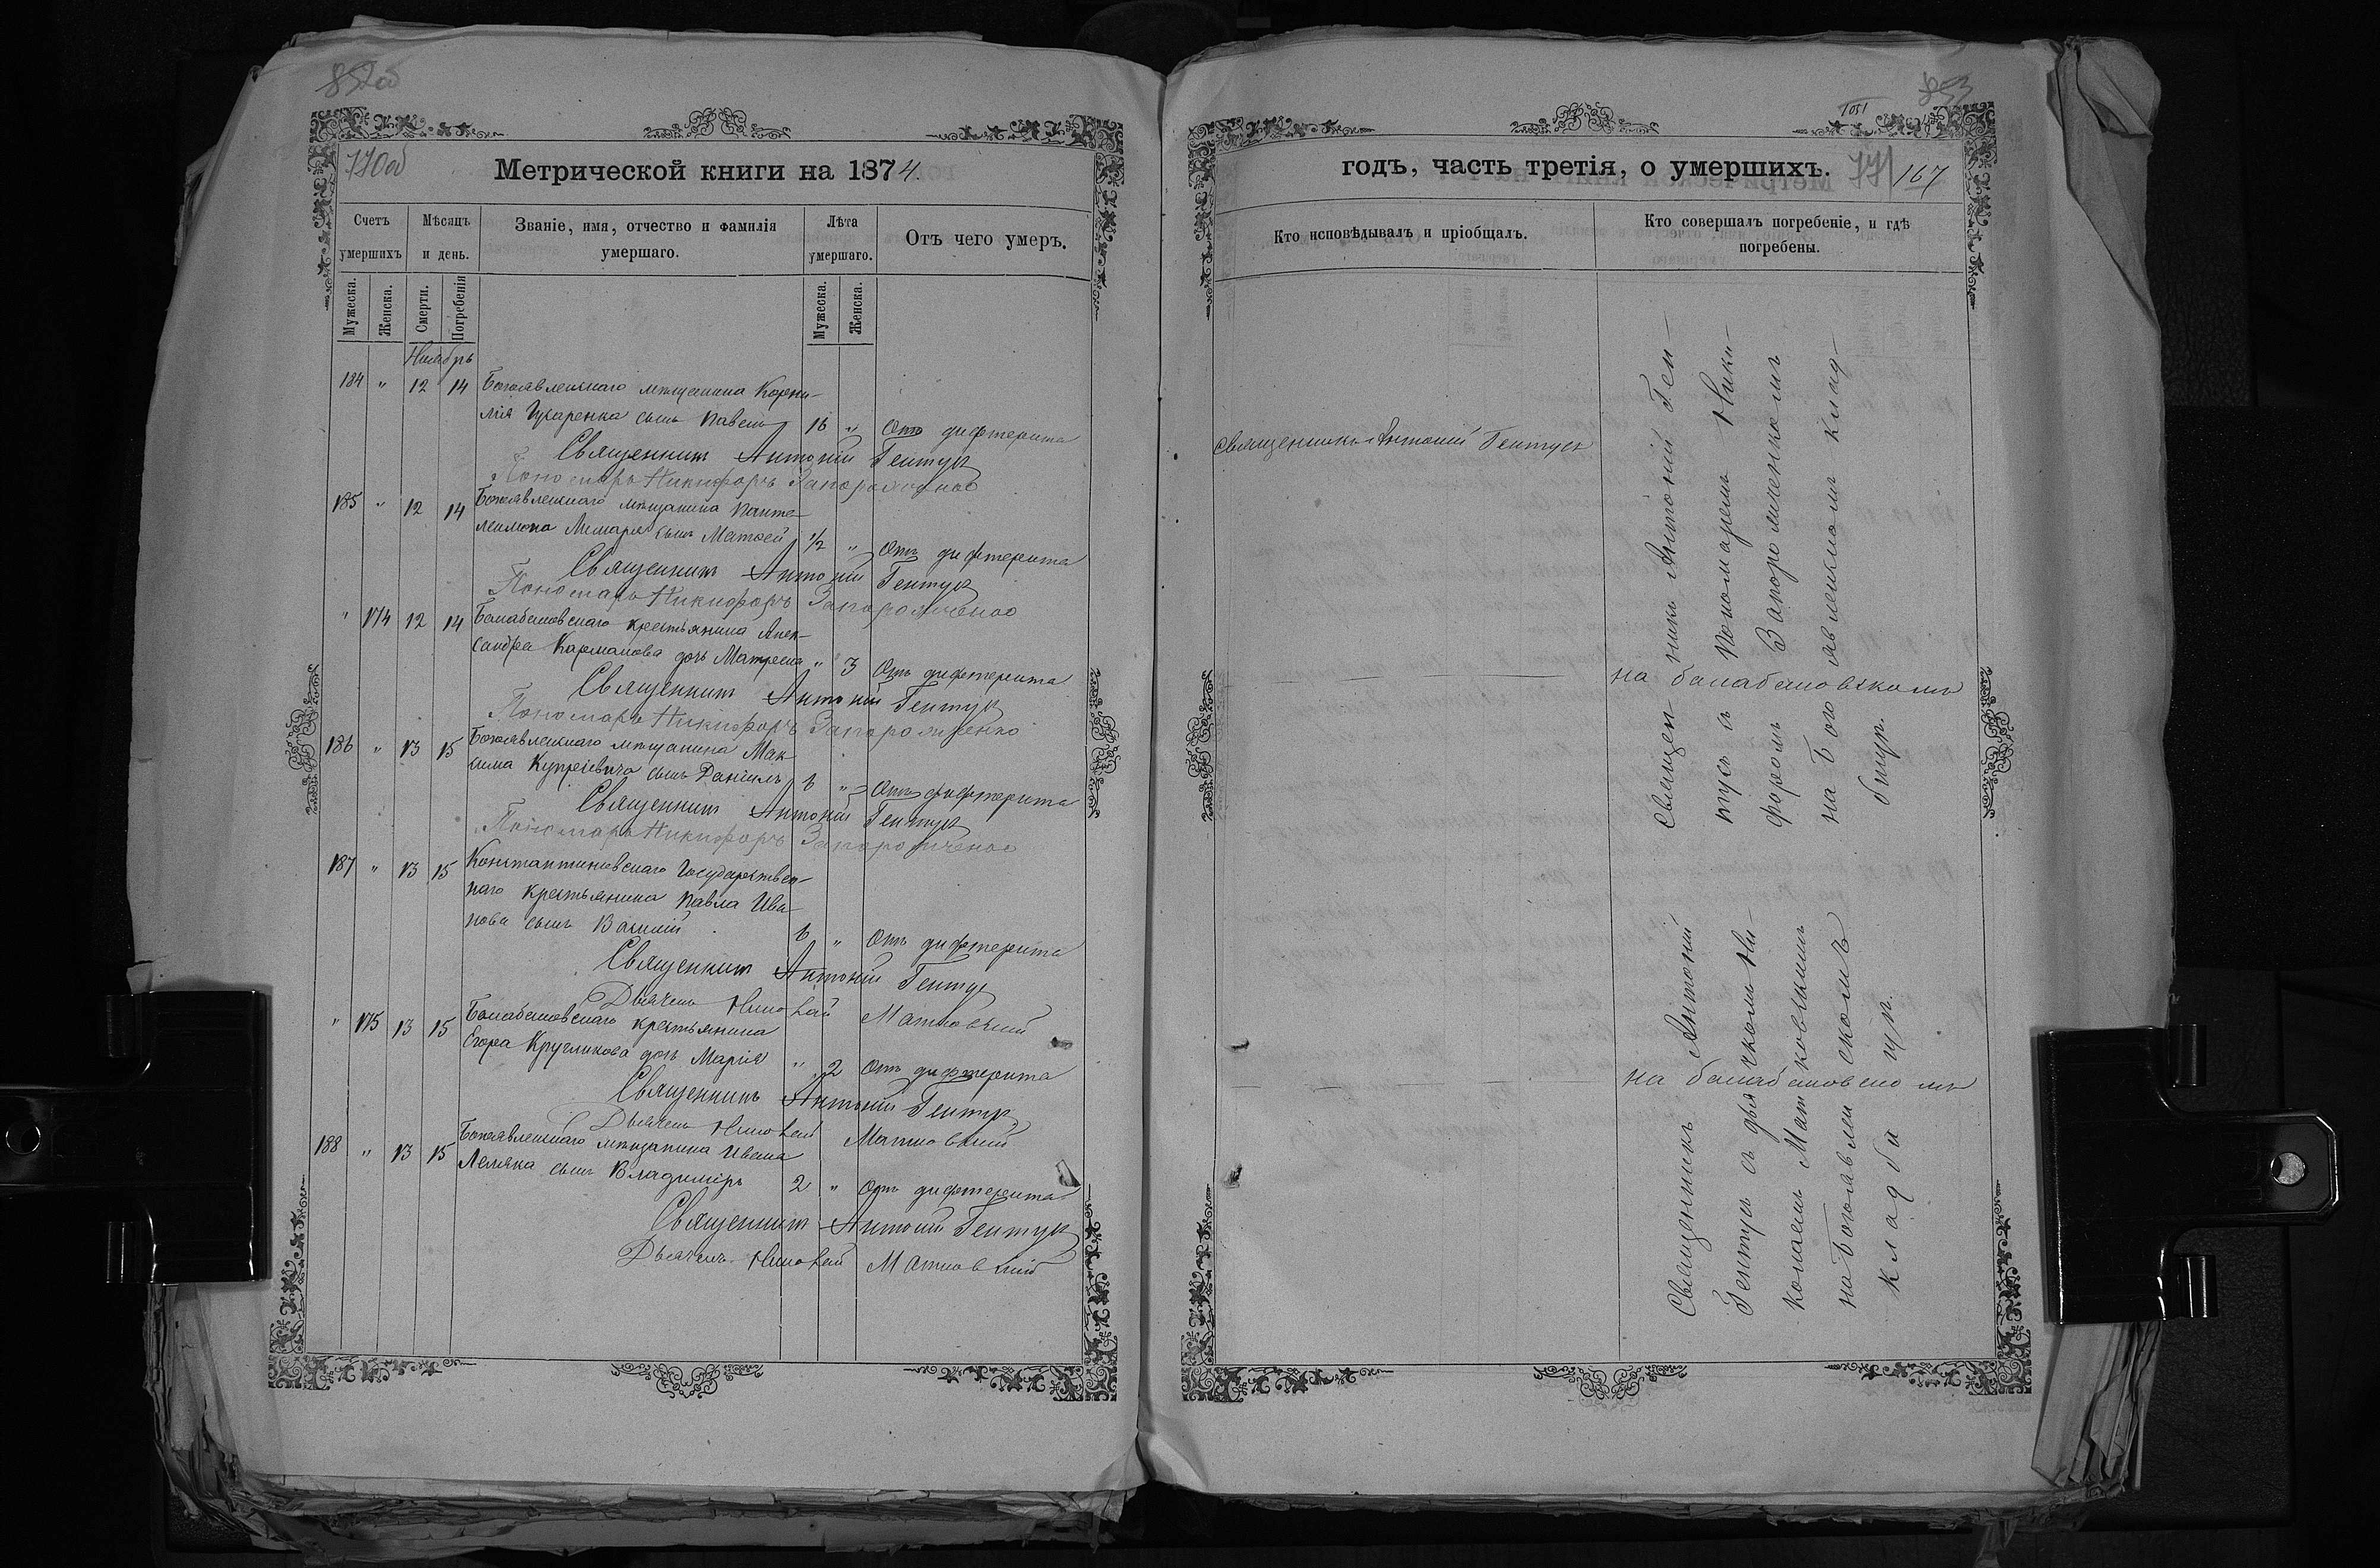 852об
170об
Метрической книги на 1874.
Счетъ умершихъ
Мѣсяцъ и день.
Званіе, имя, отчество и фамилія умершаго.
Лѣта умершаго.
Отъ чего умеръ.
Мужеска.
Женска.
Смерти.
Погребенія
Мужеска.
Женска.
Ноябрь
184 " 12 14 Богоявленскаго мѣщанина Корни-
лія сынъ Павелъ 16 " Отъ дифтерита
Священникъ Антоній Гентуя
Пономарь Никифоръ Запорожченко
185 " 12 14 Богоявленскаго мѣщанина Панте-
леимона Лимаря сынъ Матѳей 1/2 " Отъ дифтерита
Священникъ Антоній Гентуя
Пономарь Никифоръ Запорожченко
" 174 12 14 Балабановскаго крестьянина Алек-
сандра Карманова дочь Матрена " 3 Отъ дифтерита
Священникъ Антоній Гентуя
Пономарь Никифоръ Запорожченко
186 " 13 15 Богоявленскаго мѣщанина Мак-
сима сынъ Даніилъ 6 " Отъ дифтерита
Священникъ Антоній Гентуя
Пономарь Никифоръ Запорожченко
187 " 13 15 Константиновскаго Государствен-
наго крестьянина Павла Ива-
нова сынъ Василій 6 " Отъ дифтерита
Священникъ Антоній Гентуя
Дьячекъ Николай Матковскій
" 175 13 15 Балабановскаго крестьянина
Егора Кругликова дочь Марія " 2 Отъ дифтерита
Священникъ Антоній Гентуя
Дьячекъ Николай Матковскій
188 " 13 15 Богоявленскаго мѣщанина Ивана
Лемяка сынъ Владиміръ 2 " Отъ дифтерита
Священникъ Антоній Гентуя
Дьячекъ Николай Матковскій
853
1051
годъ, часть третія, о умершихъ.
171
167
Кто исповѣдывалъ и пріобщалъ.
Кто совершалъ погребеніе, и гдѣ погребены.
Священникъ Антоній Гентуя
Священ-никъ Антоній Ген-
туя съ Пономаремъ Ники-
форомъ Запорожченкомъ
на Богоявленскомъ клад-
бищѣ.
на балабановскомъ
Священникъ Антоній
Гентуя съ дьячкомъ Ни-
колаемъ Матковскимъ
на Богоявленскомъ
кладбищѣ.
на балабановскомъ